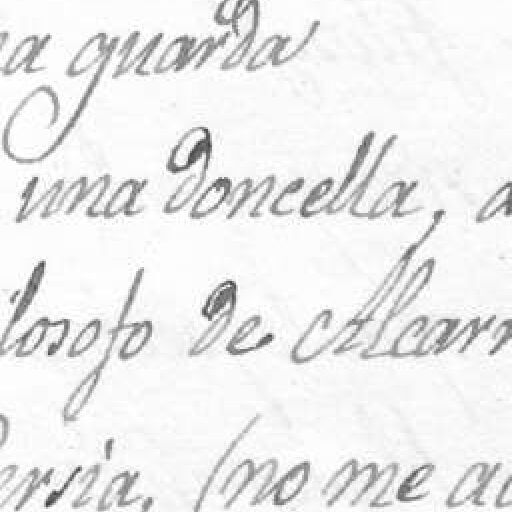 a guarda
una doncella, a
ilosofo de Alcarr
Persia, (no me ac